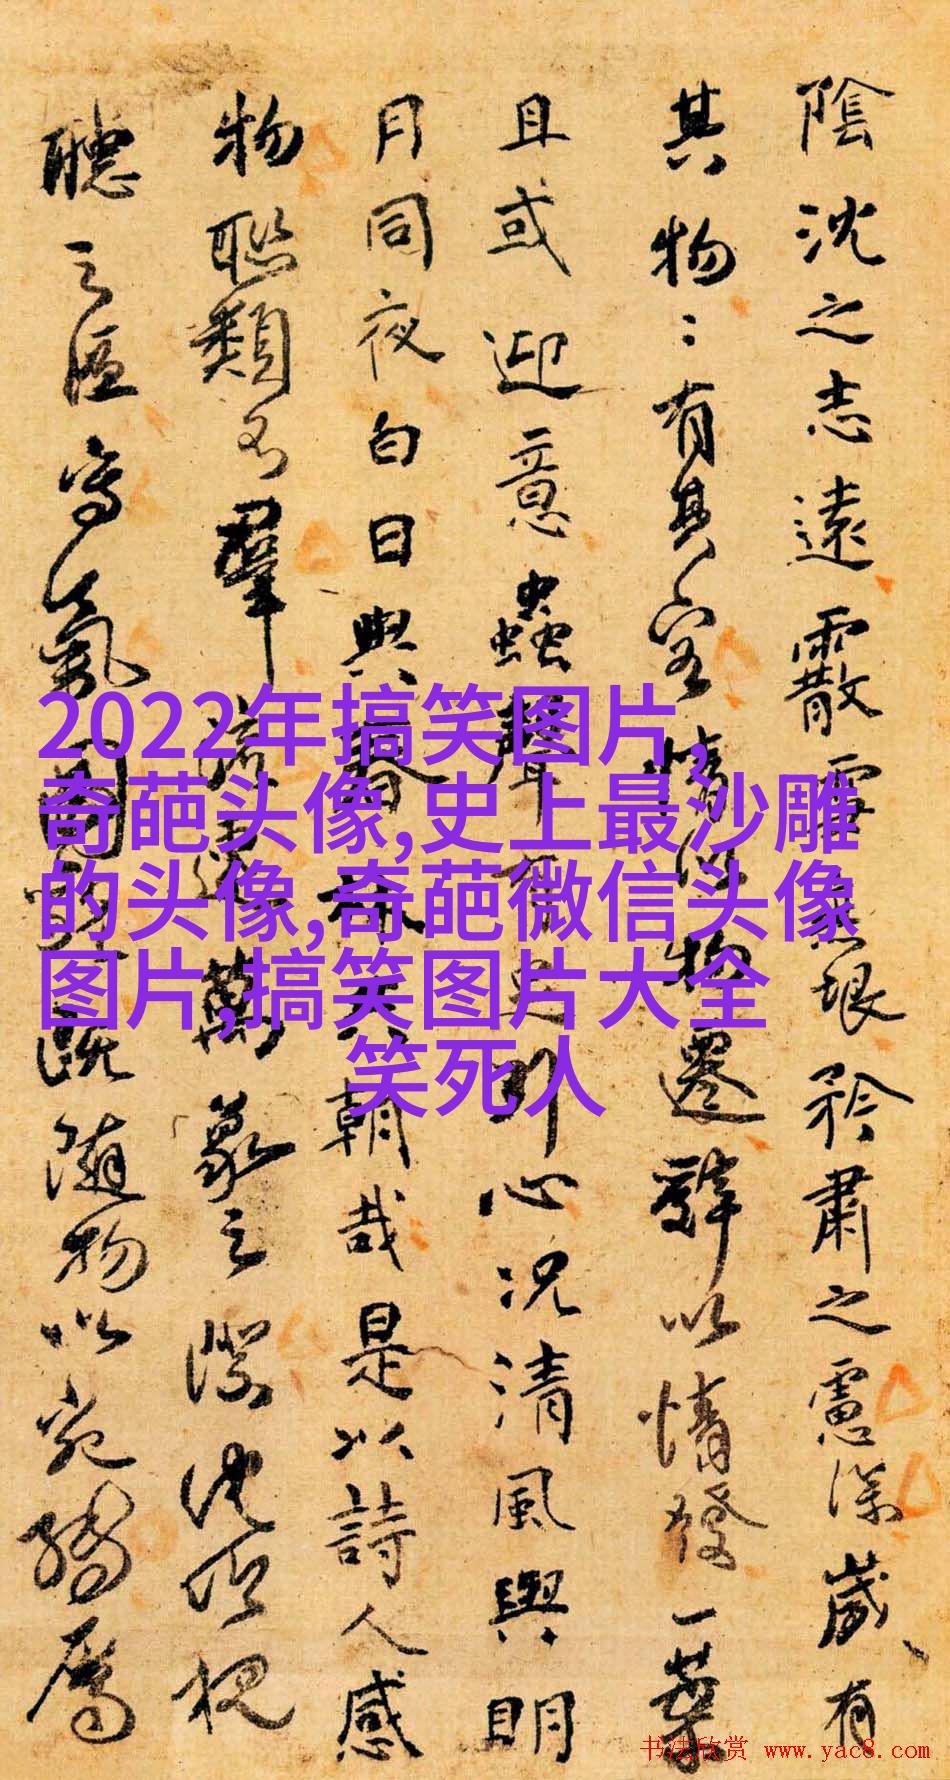 陰沈之志遠霰雪無垠矜肅之慮深歲有
其物物有其容情以物遷辭以情發一葉
且或迎意蟲聲有足引心況清風與明
月同夜白日與春林共朝哉是以詩人感
物聯類不窮流連萬象之際沈吟視
聽之區寫氣圖貌既隨物以宛轉屬
2022年搞笑图片,
奇葩头像,史上最沙雕
的头像,奇葩微信头像
图片,搞笑图片大全
笑死人
书法欣赏 www.yac8.com